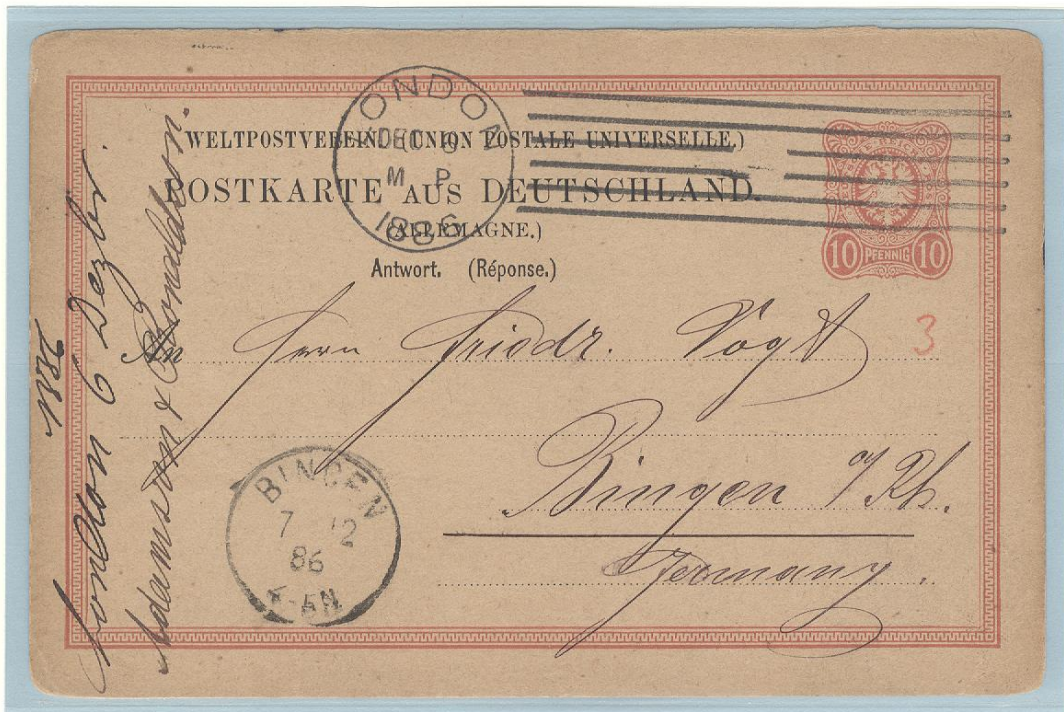 WELTPOSTVEREIN. (UNION POSTALE UNIVERSELLE.)
POSTKARTE AUS DEUTSCHLAND.
(ALLEMAGNE.)
Antwort. (Réponse.)
LONDON
DEC 6
M P
1886
REICHS
10 PFENNIG 10
3
An Herrn Friedr. Vogt
Bingen a/Rh.
Germany.
BINGEN
7 12
86
-5N
London 6 Dezbr.
1886
Adamson & Ronaldson.